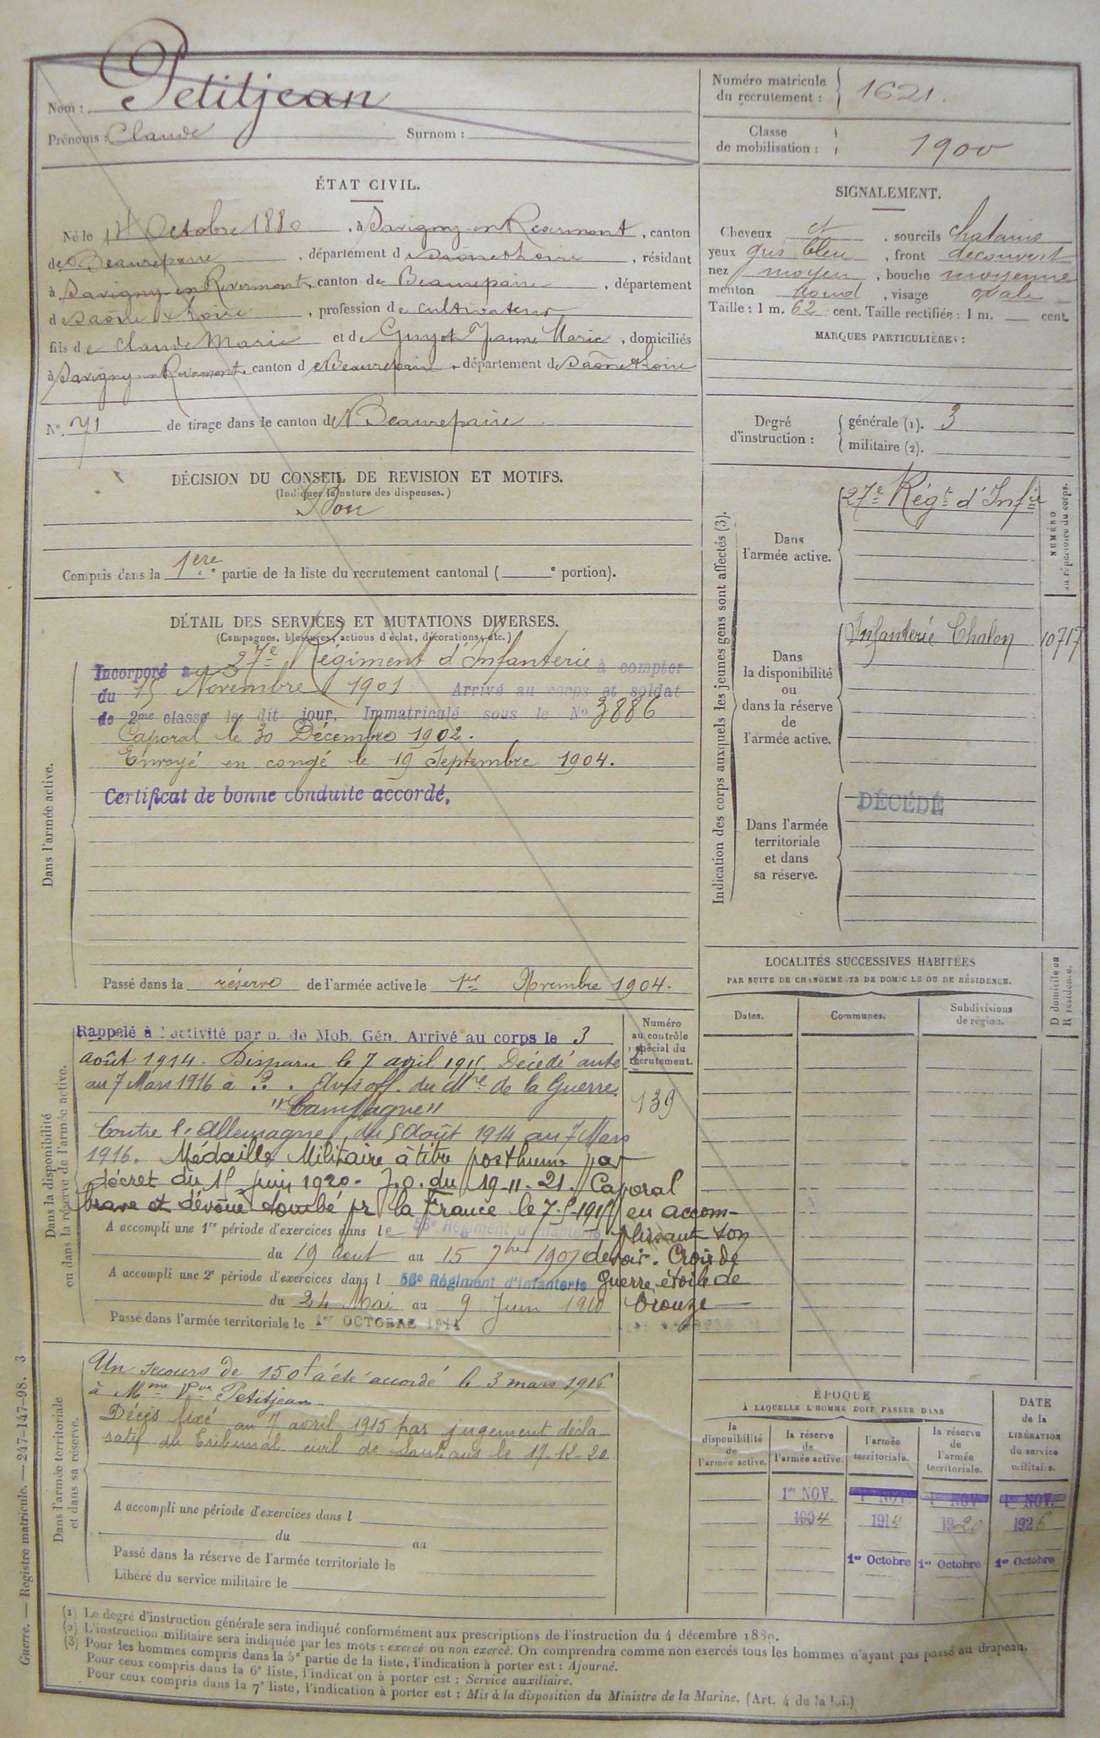 Nom : Petitjean
Prénoms : Claude Surnom :
Numéro matricule
du recrutement : 1621.
Classe
de mobilisation : 1900
ÉTAT CIVIL.
Né le 14 Octobre 1880, à Savigny-en-Revermont, canton
de Beaurepaire, département de Saône et Loire, résidant
à Savigny-en-Revermont, canton de Beaurepaire, département
de Saône et Loire, profession de cultivateur
fils de Claude Marie et de Guyot Jeanne Marie, domiciliés
à Savigny en Revermont, canton de Beaurepaire, département de Saône et Loire
N° 71 de tirage dans le canton de Beaurepaire
SIGNALEMENT.
Cheveux et, sourcils chatains
yeux gris bleu, front découvert
nez moyen, bouche moyenne
menton rond, visage ovale
Taille : 1 m. 62 cent. Taille rectifiée : 1 m. cent.
MARQUES PARTICULIÈRES :
Degré
d'instruction :
générale (1). 3
militaire (2).
DÉCISION DU CONSEIL DE REVISION ET MOTIFS.
(Indiquer la nature des dispenses.)
Bon
Compris dans la 1ère partie de la liste du recrutement cantonal ( e portion).
DÉTAIL DES SERVICES ET MUTATIONS DIVERSES.
(Campagnes, blessures, actions d'éclat, décorations, etc.)
Dans l'armée active.
Incorporé au 27e Régiment d'Infanterie à compter
du 15 Novembre 1901 Arrivé au corps et soldat
de 2me classe le dit jour. Immatriculé sous le N° 3886
Caporal le 30 Décembre 1902.
Envoyé en congé le 19 Septembre 1904.
Certificat de bonne conduite accordé.
Passé dans la réserve de l'armée active le 1er Novembre 1904.
Indication des corps auxquels les jeunes gens sont affectés (3).
Dans
l'armée active.
27e Régt d'Infie
NUMÉRO
au répertoire du corps.
Dans
la disponibilité
ou
dans la réserve
de
l'armée active.
Infanterie Chalon 10717
Dans l'armée
territoriale
et dans
sa réserve.
DÉCÉDÉ
LOCALITÉS SUCCESSIVES HABITÉES
PAR SUITE DE CHANGEMENTS DE DOMICILE OU DE RÉSIDENCE.
Dates. Communes. Subdivisions
de région.
D domicile ou
R résidence.
Dans la disponibilité
ou dans la réserve de l'armée active.
Numéro
au contrôle
spécial du
recrutement.
139
Rappelé à l'activité par o. de Mob. Gén. Arrivé au corps le 3
août 1914. Disparu le 7 avril 1915. Décédé ante
au 7 Mars 1916 à ?. Avis off. du Mre de la Guerre
"Campagne"
Contre l'Allemagne, du 5 Août 1914 au 7 Mars
1916. Médaille Militaire à titre posthume par
décret du 15 juin 1920. J.O. du 19.11.21. Caporal
brave et dévoué tombé pr la France le 7.5.1915 en accom-
plissant son
devoir. Croix de
Guerre étoile de
bronze
A accompli une 1re période d'exercices dans le 56e Régiment d'Infanterie
du 19 août au 15 7bre 1907
A accompli une 2e période d'exercices dans l 56e Régiment d'Infanterie
du 24 Mai au 9 Juin 1910
Passé dans l'armée territoriale le 1er OCTOBRE 1914
Dans l'armée territoriale
et dans sa réserve.
Un secours de 150f a été accordé le 3 mars 1916
à Mme Vve Petitjean.
Décès fixé au 7 avril 1915 par jugement décla-
ratif du Tribunal civil de Louhans le 17-12-20
A accompli une période d'exercices dans l
du au
Passé dans la réserve de l'armée territoriale le
Libéré du service militaire le
ÉPOQUE
À LAQUELLE L'HOMME DOIT PASSER DANS
la
disponibilité
de
l'armée active.
la réserve
de
l'armée active.
l'armée
territoriale.
la réserve
de
l'armée
territoriale.
DATE
de la
LIBÉRATION
du service
militaire.
1er NOV. 1er NOV. 1er NOV. 1er NOV.
1904 1914 1920 1926
1er Octobre 1er Octobre 1er Octobre
(1) Le degré d'instruction générale sera indiqué conformément aux prescriptions de l'instruction du 4 décembre 1889.
(2) L'instruction militaire sera indiquée par les mots : exercé ou non exercé. On comprendra comme non exercés tous les hommes n'ayant pas passé au drapeau.
(3) Pour les hommes compris dans la 5e partie de la liste, l'indication à porter est : Ajourné.
Pour ceux compris dans la 6e liste, l'indication à porter est : Service auxiliaire.
Pour ceux compris dans la 7e liste, l'indication à porter est : Mis à la disposition du Ministre de la Marine. (Art. 4 de la loi.)
Guerre. — Registre matricule. — 247-147-98. 3